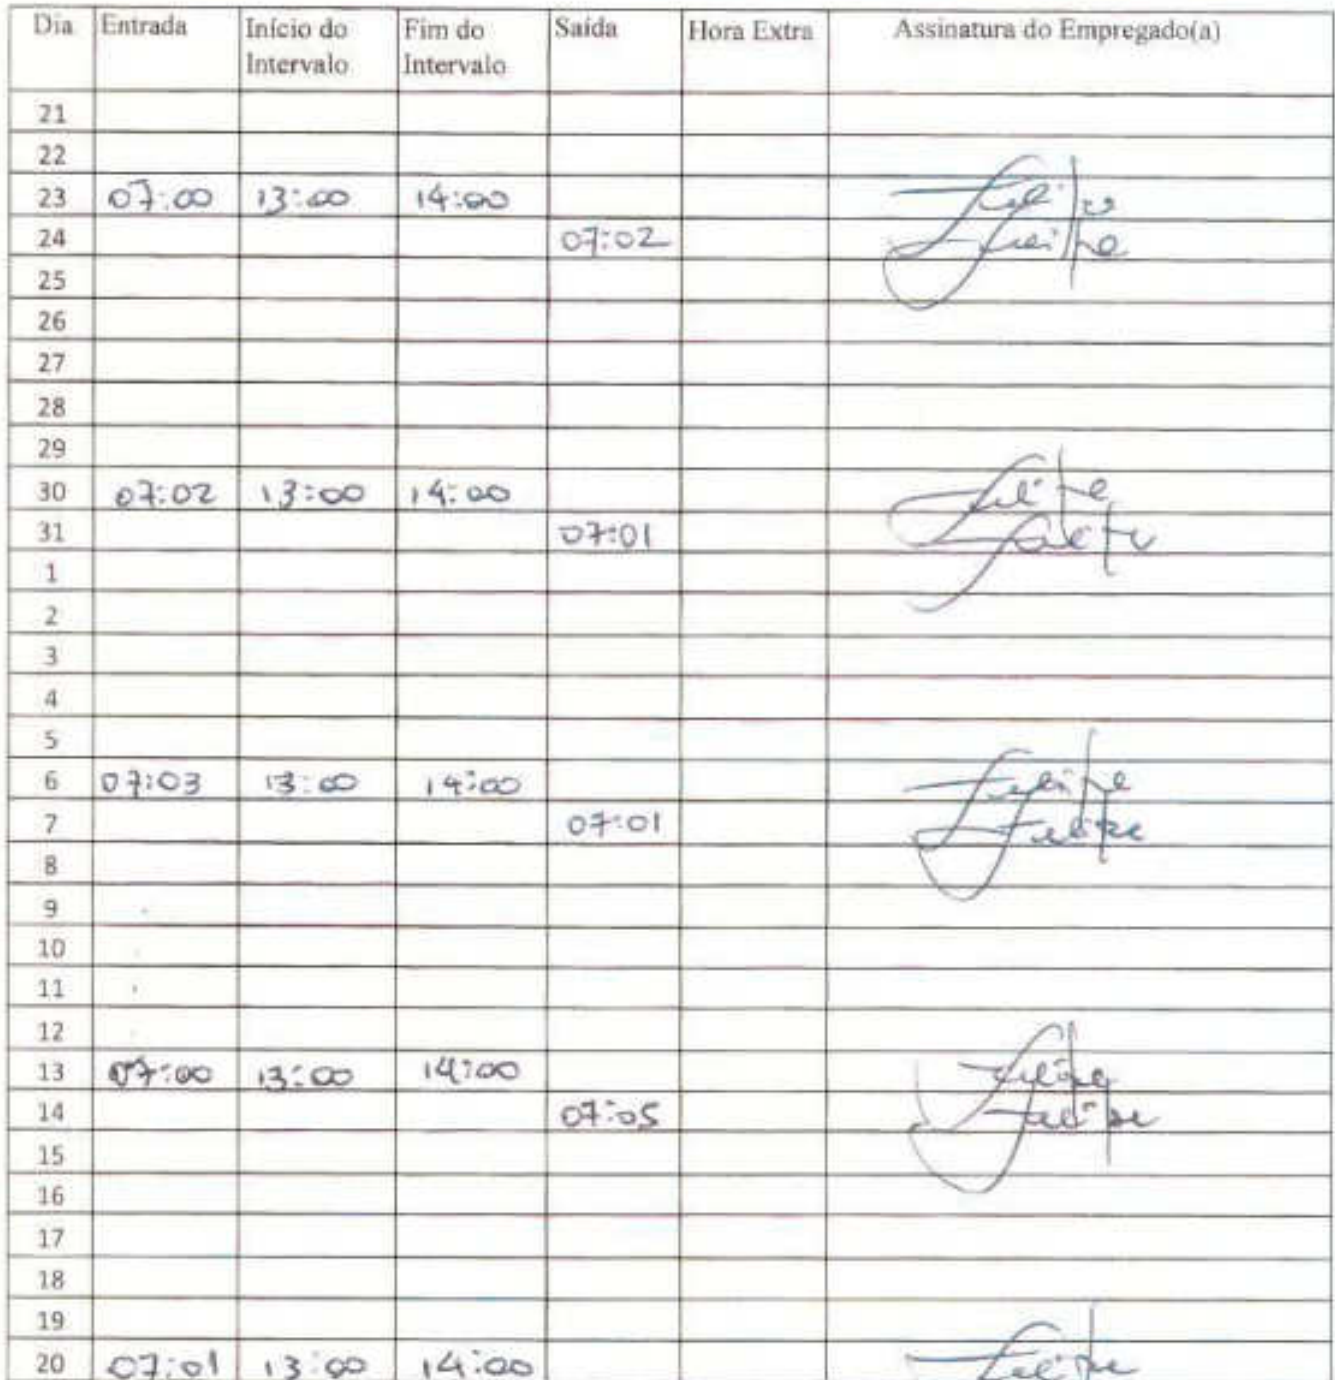 Dia Entrada Início do Intervalo Fim do Intervalo Saída Hora Extra Assinatura do Empregado(a)
21
22
23 07:00 13:00 14:00 Felipe
24 07:02 Felipe
25
26
27
28
29
30 07:02 13:00 14:00 Felipe
31 07:01 Felipe
1
2
3
4
5
6 07:03 13:00 14:00 Felipe
7 07:01 Felipe
8
9
10
11
12
13 07:00 13:00 14:00 Felipe
14 07:05 Felipe
15
16
17
18
19
20 07:01 13:00 14:00 Felipe